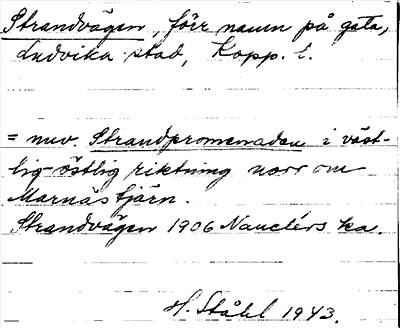 Strandvägen, förr namn på gata,
Ludvika stad, Kopp. l.
= nuv. Strandpromenaden i väst-
lig-östlig riktning norr om
Marnästjärn.
Strandvägen 1906 Nauclérs ka.
H. Ståhl 1943.